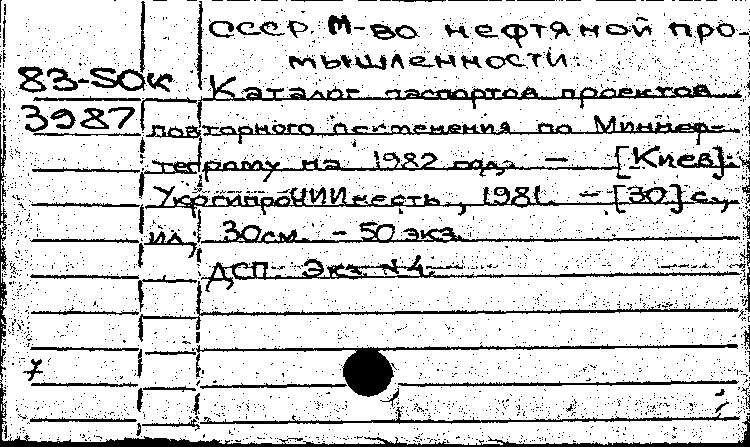 СССР. М-во нефтяной про-
мышленности.
83-50к Каталог паспортов проектов
3987 повторного применения по Миннеф-
тепрому на 1982 год. – [Киев]:
УкргипроНИИнефть, 1981. – [30] с.,
ил; 30см. – 50 экз.
ДСП. Экз. N 4.
7